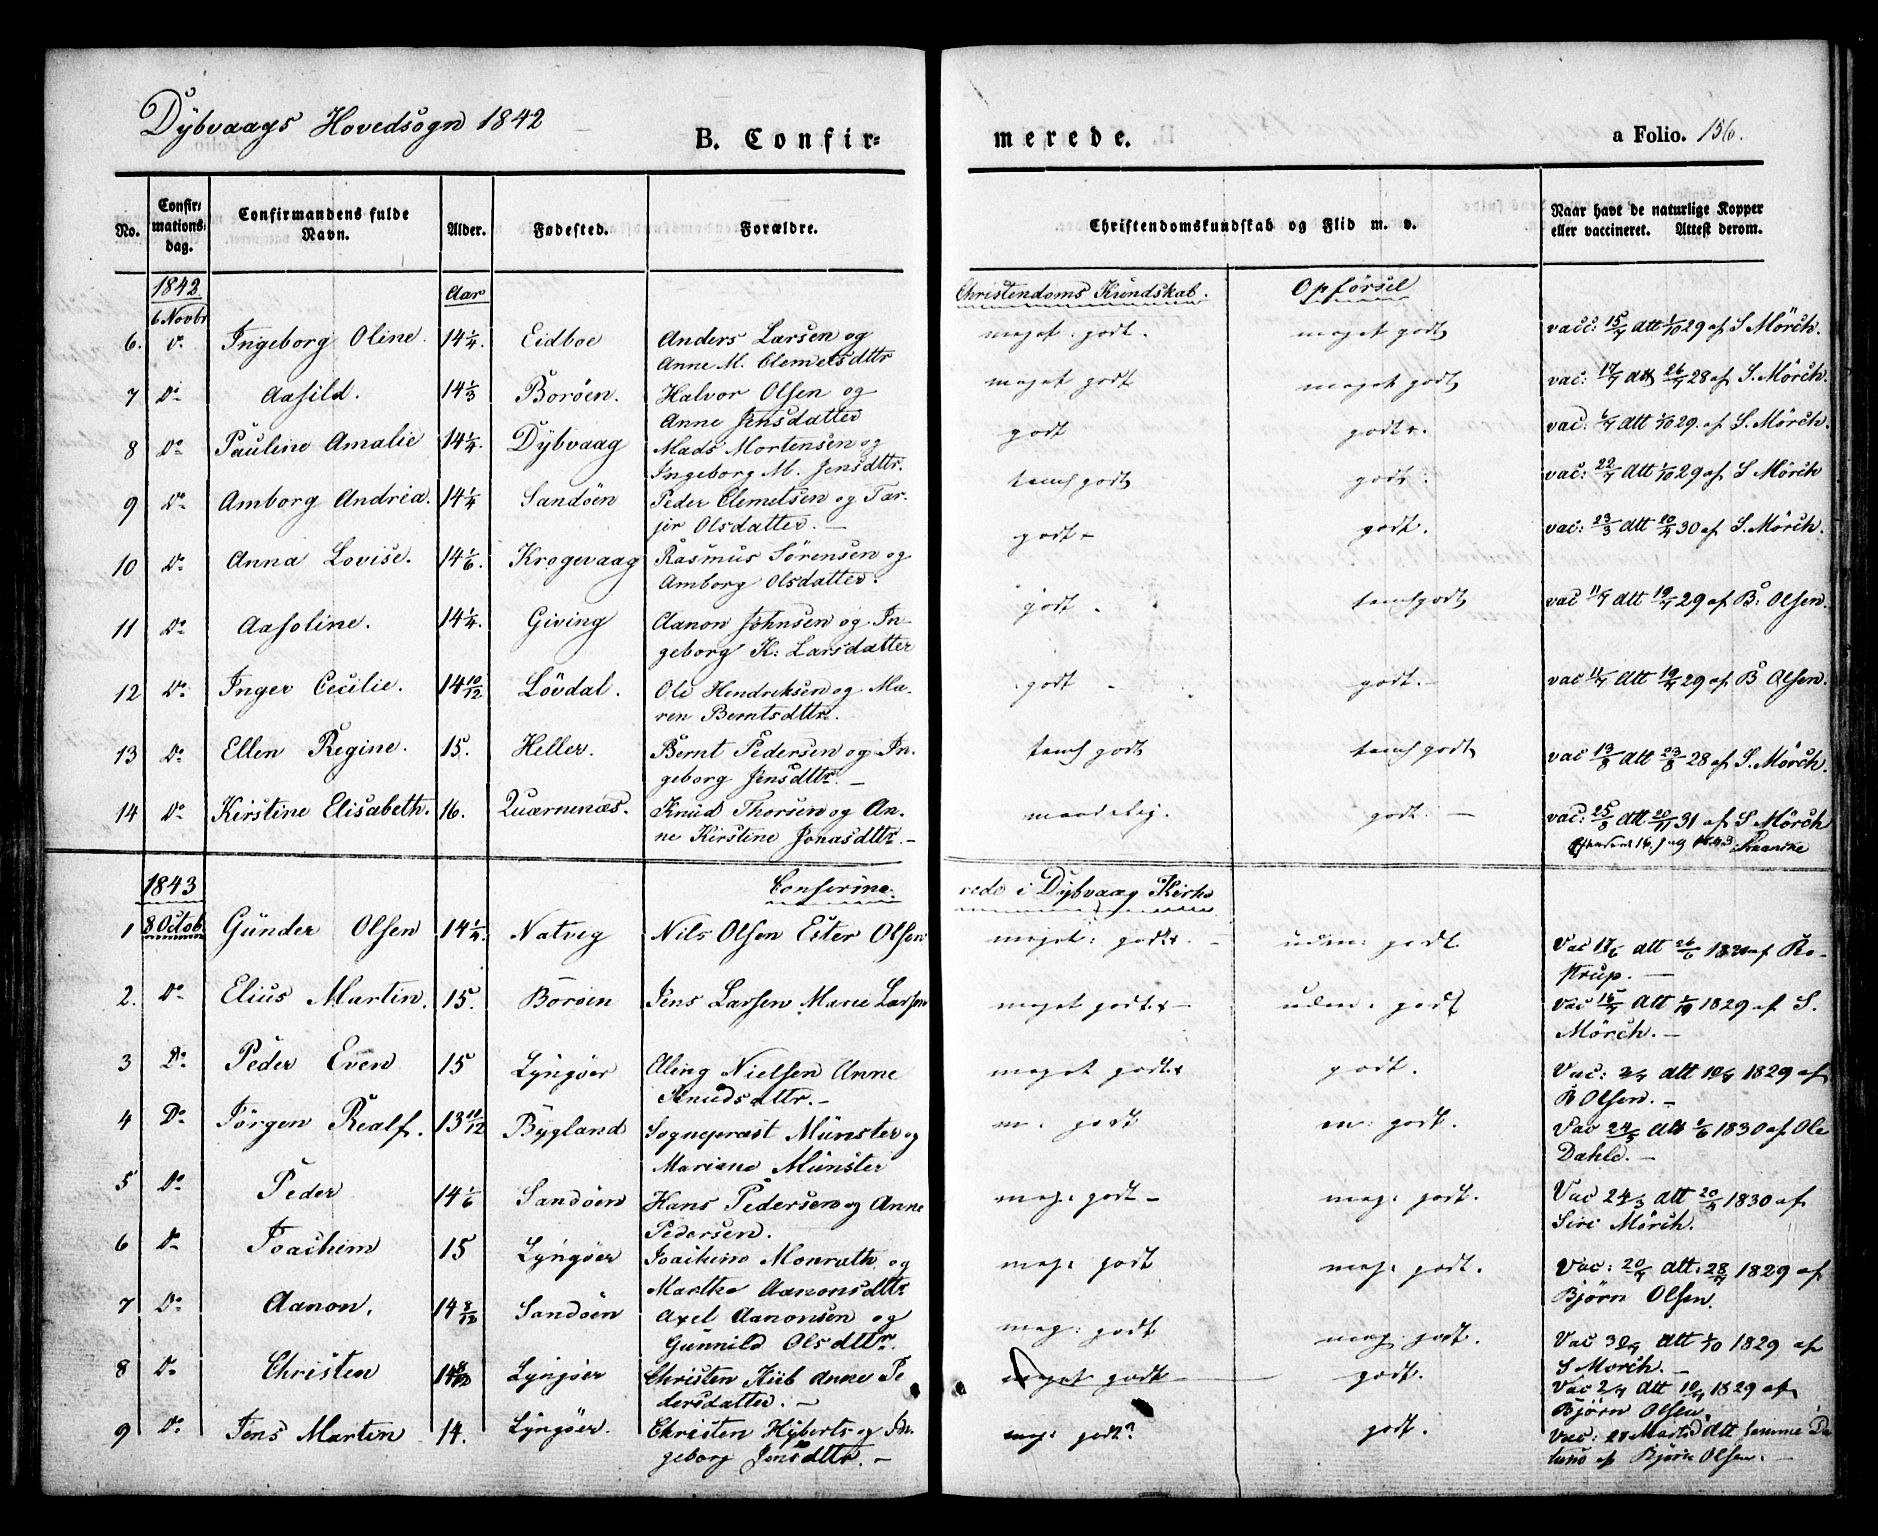 Dybvaags Hovedsogn 1842
B. Confir=
merede.
a Folio. 156.
No.
Confir=
mations=
dag.
Confirmandens fulde
Navn.
Alder.
Fødested.
Forældre.
Christendomskundskab og Flid m. v.
Naar havt de naturlige Kopper
eller vaccineret. Attest derom.
1842
6 Novbr
Aar
Christendoms Kundskab.
Opførsel
6. Do Ingeborg Oline. 14 1/4. Eidboe Anders Larsen og
Anne M. Clemetsdttr
meget godt. meget godt vacc: 15/7 Att 1/10 29 af S Mörch.
7 Do Aasild. 14 1/3 Borøen. Halvor Olsen og
Anne Jensdatter
meget godt meget godt vac: 17/7 Att 26/7 28 af S. Mörch.
8 Do Pauline Amalie 14 1/4. Dybvaag Mads Mortensen og
Ingeborg M. Jensdttr.
godt godt. vac: Att 1/10 29. af S. Mörch.
9 Do Amborg Andrea. 14 1/4 Sandöen Peder Clemetsen og Tar-
jer Olsdatter. —
temlgodt godt. vac: 22/7 Att 1/10 29 af S Mörch
10 Do Anna Lovise. 14 1/6. Krogevaag Rasmus Sörensen og
Amborg Olsdatter.
godt godt. vac: 23/3 Att 20/4 30 af S. Mörch.
11 Do Aasoline. 14 1/4. Giving Aanon Johnsen og In-
geborg K: Larsdatter
godt. temlgodt vac 11/7 Att 19/7 29 af B: Olsen.
12 Do Inger Cecilie. 14 10/12 Lövdal. Ole Hendriksen og Ma-
ren Berntsdttr.
godt godt. — vac 11/7 Att 19/7 29 af B Olsen.
13 Do Ellen Regine. 15. Heller. Bernt Pedersen og In-
geborg Jensdttr. —
teml godt teml godt vac 13/8 Att 23/8 28 af S. Mörch.
14 Do Kirstine Elisabeth. 16. Quærnenæs. Knud Thorsen og An-
ne Kirstine Jonasdttr. —
maadelig. godt. — vac: 25/8 Att 20/11 31 af S Mörch
1843
Confirme-
rede i Dybvaag Kirke
1 8 Octob. Gunder Olsen 14 1/4. Natvig Nils Olsen Ester Olsen
meget godt. — udm: godt Vac 17/6 Att 26/6 af Ro-
strup. —
2. Do Elius Martin. 15. Boröen Jens Larsen Marie Larsen
meget godt. — udm: godt Vac 15/7 Att 1/10 1829 af S.
Mörch. —
3 Do Peder Even 15 Lyngöer Aling Nielsen Anne
Knudsdttr. —
meget godt godt. Vac: Att 1829 af
B Olsen. —
4 Do Jörgen Realf. 13 11/12 Bygland Sognepræst Münster og
Mariane Münster
m. godt m: godt. Vac 24/5 Att 1/6 1830 af Ole
Dahle. —
5 Do Peder 14 1/6 Sandöen Hans Pedersen og Anne
Pedersen.
meg: godt — meg: godt. Vac 24/3 Att 20/4 1830 af
Siri Mörch.
6 Do Joachim 15 Lyngöer Joachim Monrath og
Marthe Aanonsdttr
meg: godt meg: godt. Vac: 20/7 Att: 28/7 1829 af
Björn Olsen.
7 Do Aanon. 14 8/12 Sandöen Axel Aanonsen og
Gunnild Olsdttr.
meg: godt meg: godt. Vac Att 1/10 1829 af
S Morch. —
8 Do Christen 14 8/12 Lyngöer Christen Kiib Anne Pe
dersdatter. —
meget godt — godt. Vac 2/7 Att 10/7 1829 af
Björn Olsen.
9 Do Jens Martin 14. Lyngöer. Christen Hyberts og In-
geborg Jensdttr. —
meg: godt? godt. Vac: Marts Att samme Da
tuno af Björn Olsen. —